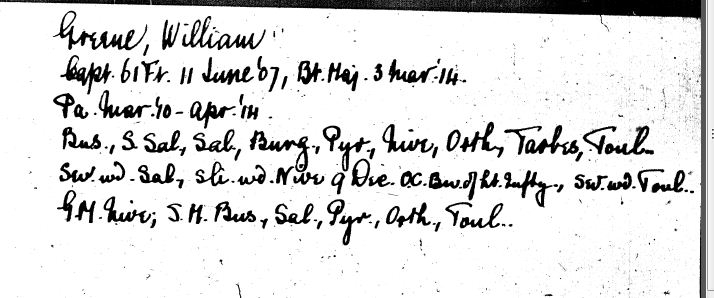 Greene, William
Capt. 61 Ft. 11 June '07, Bt. Maj. 3 Mar '14.
Pa. Mar. '10 - Apr. '14.
Bus., S. Sal., Sal., Burg., Pyr., Nive, Orth., Tarbes, Toul.
Sev. wd. Sal., sli. wd. Nive 9 Dec. O.C. Bn. of Lt. Infty., Sev. wd. Toul..
G.M. Nive; S.M. Bus., Sal., Pyr., Orth., Toul..